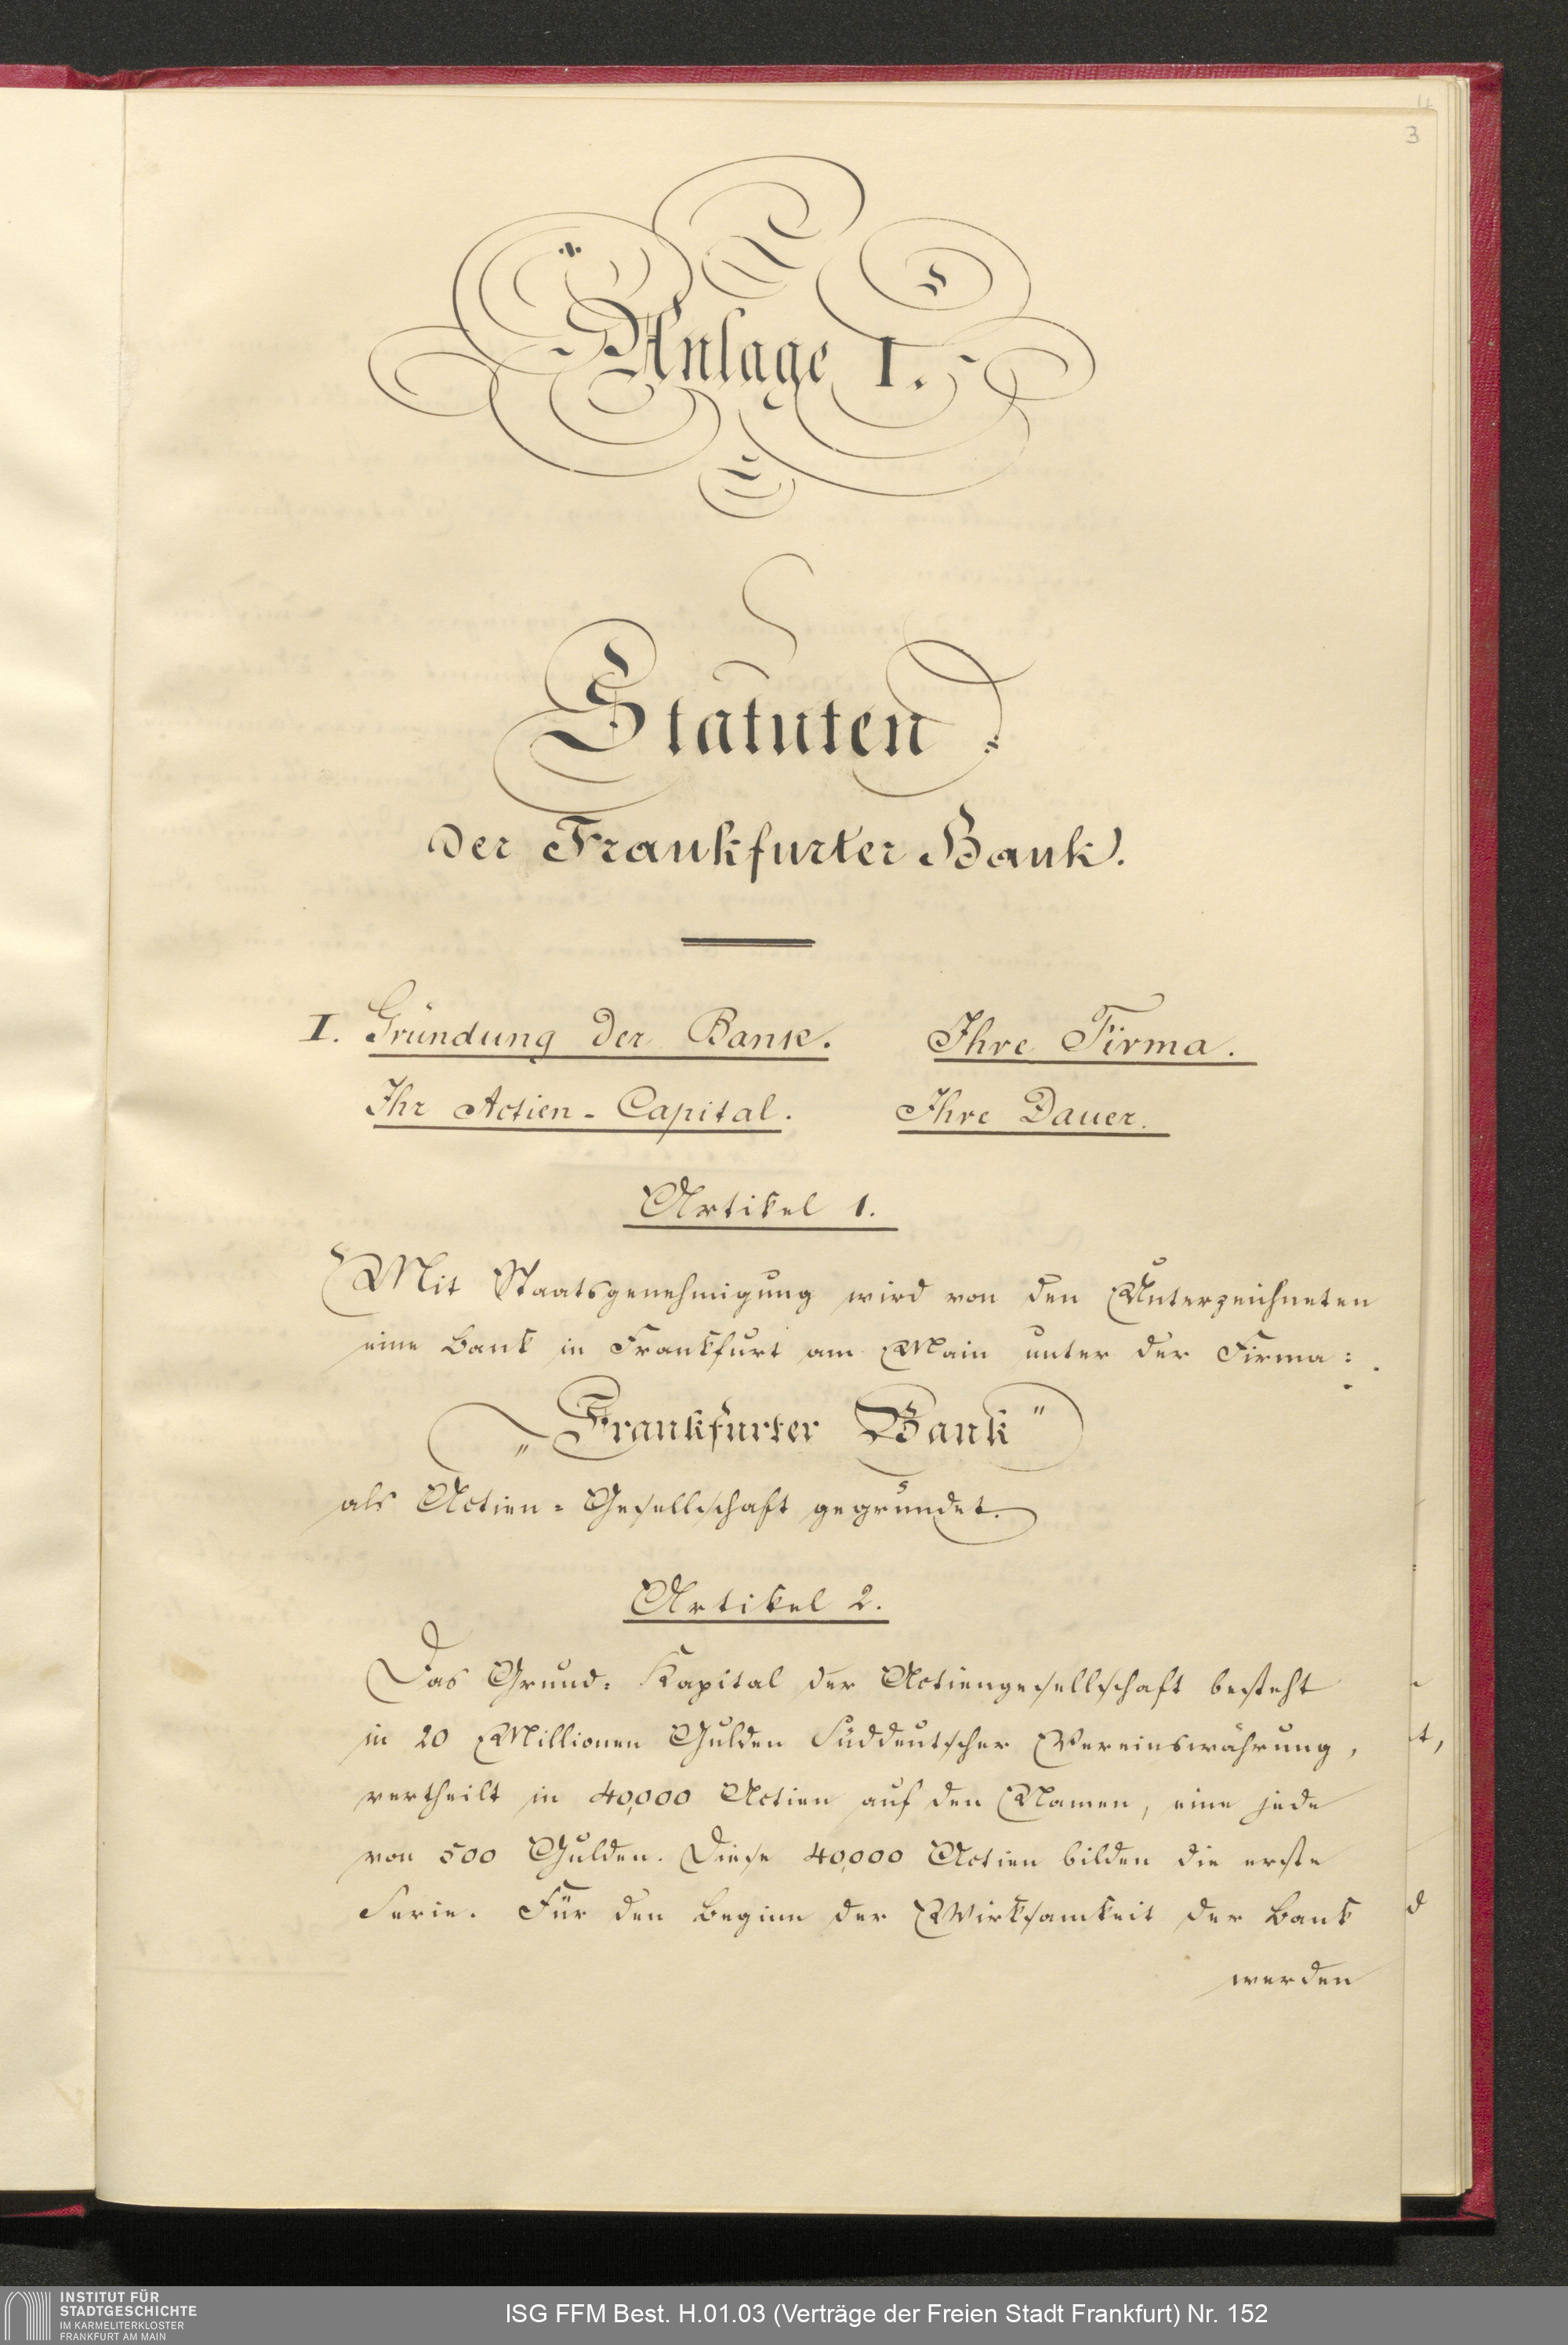 4
3
Anlage I.
Statuten
der Frankfurter Bank.
I. Gründung der Bank. Ihre Firma.
Ihr Actien-Capital. Ihre Dauer.
Artikel 1.
Mit Staatsgenehmigung wird von den Unterzeichneten
eine Bank in Frankfurt am Main unter der Firma:
„Frankfurter Bank"
als Actien-Gesellschaft gegründet.
Artikel 2.
Das Grund-Kapital der Actiengesellschaft besteht
in 20 Millionen Gulden Süddeutscher Vereinswährung,
vertheilt in 40,000 Actien auf den Namen, eine jede
von 500 Gulden. Diese 40,000 Actien bilden die erste
Serie. Für den Beginn der Wirksamkeit der Bank
werden
t,
d
INSTITUT FÜR
STADTGESCHICHTE
IM KARMELITERKLOSTER
FRANKFURT AM MAIN
ISG FFM Best. H.01.03 (Verträge der Freien Stadt Frankfurt) Nr. 152